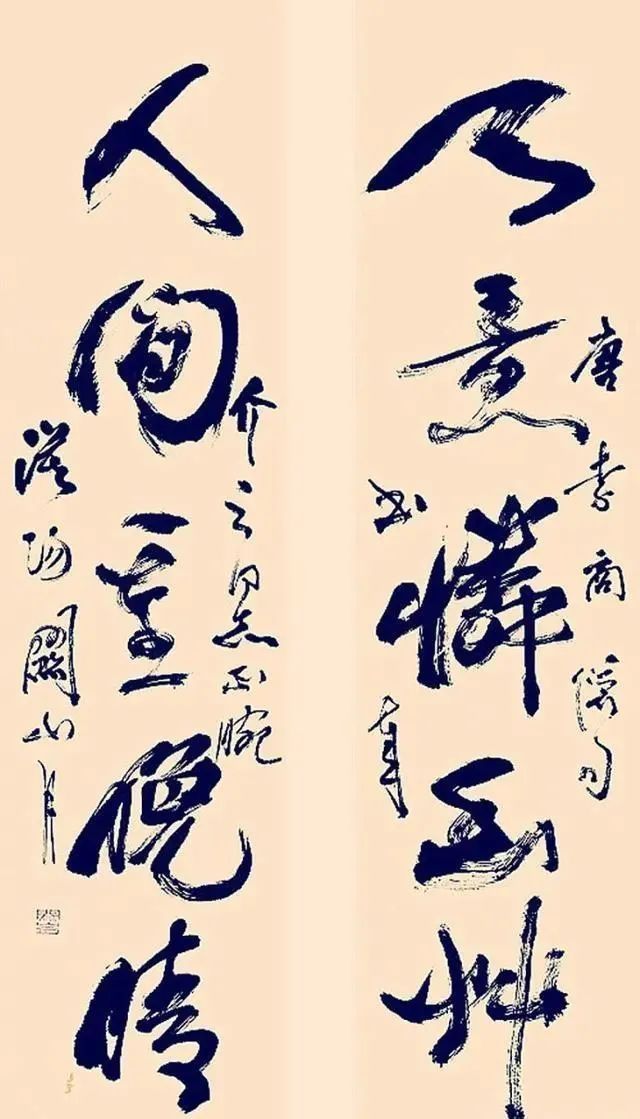 唐李商隱句
天意憐幽艸
書奉
介 同志正腕
人間重晚晴
漠陽關山月